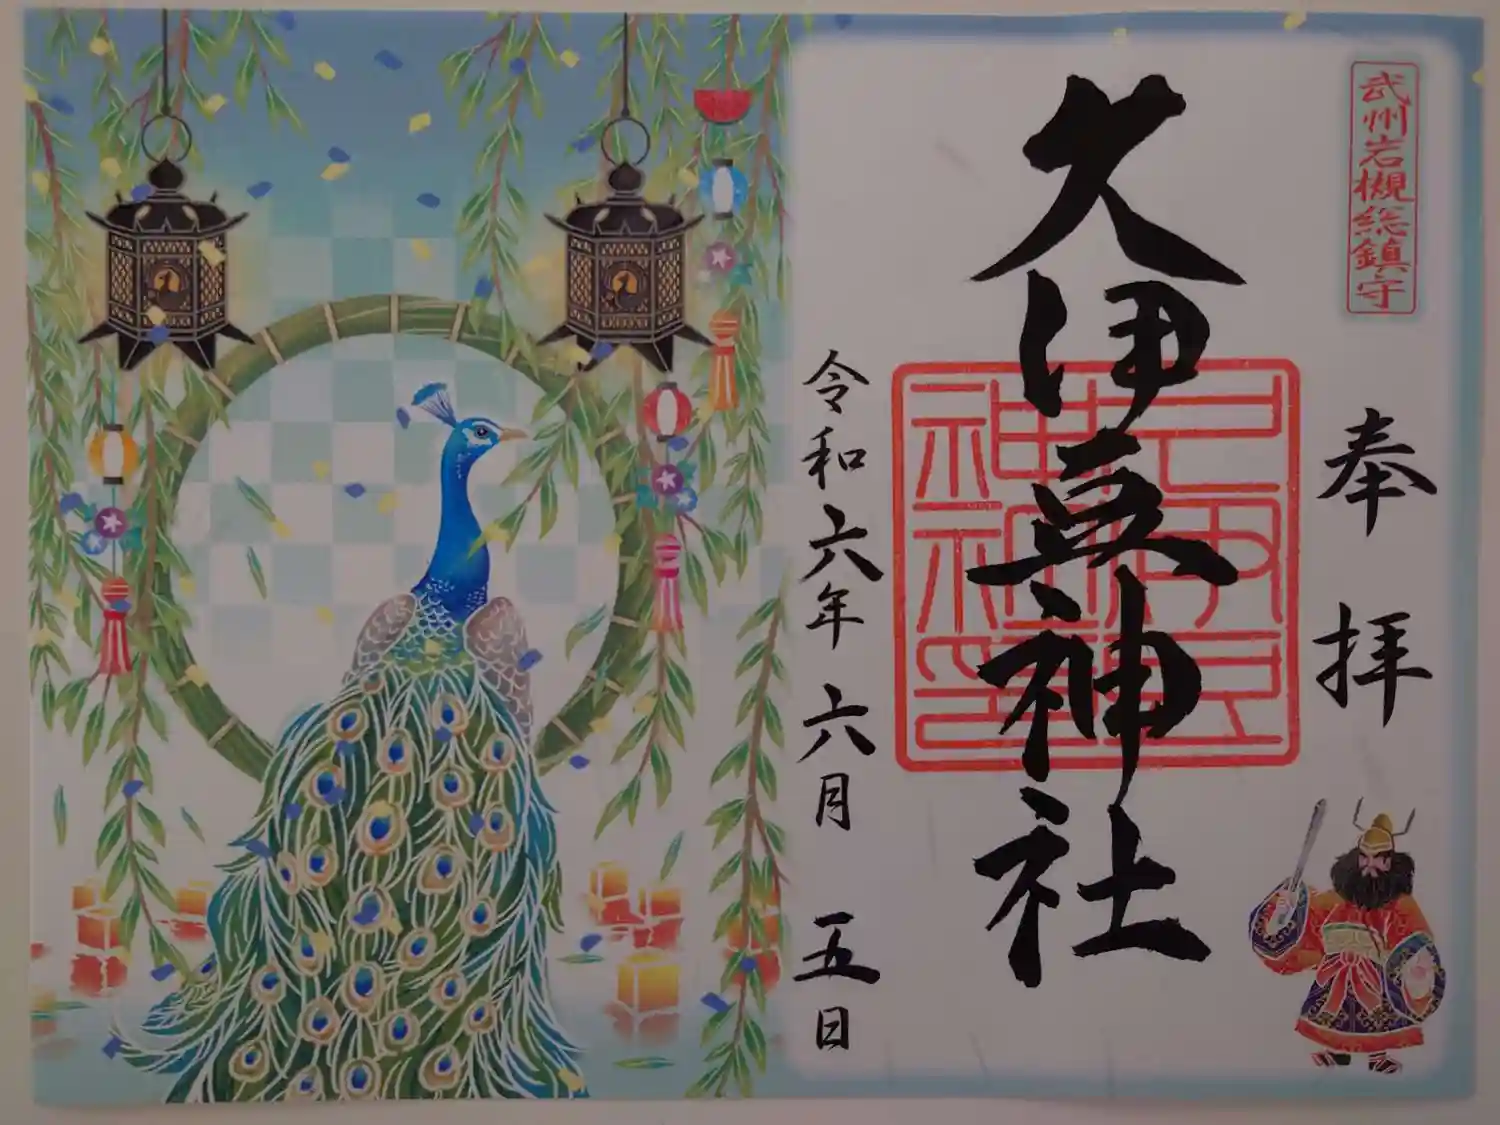 武州岩槻総鎮守
奉拝
久伊豆神社
久伊豆
神社印
令和六年 六月 五日